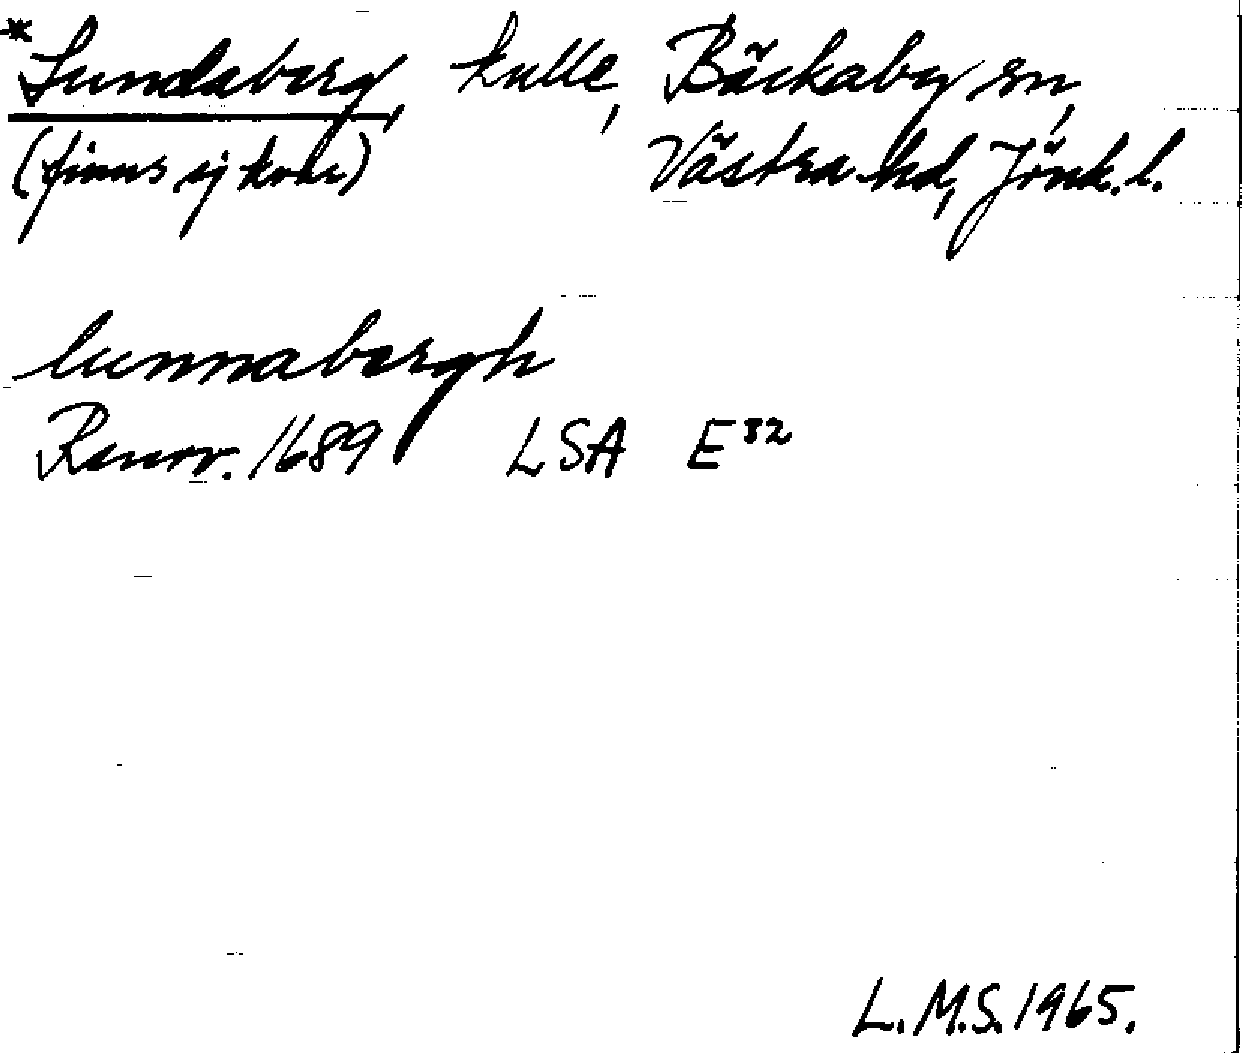 *Lundaberg, kulle, Bäckaby sn,
(finns ej kvar) Västra hd, Jönk. l.
lunnabergh
Renov. 1689 LSA E³²
L.M.S. 1965.